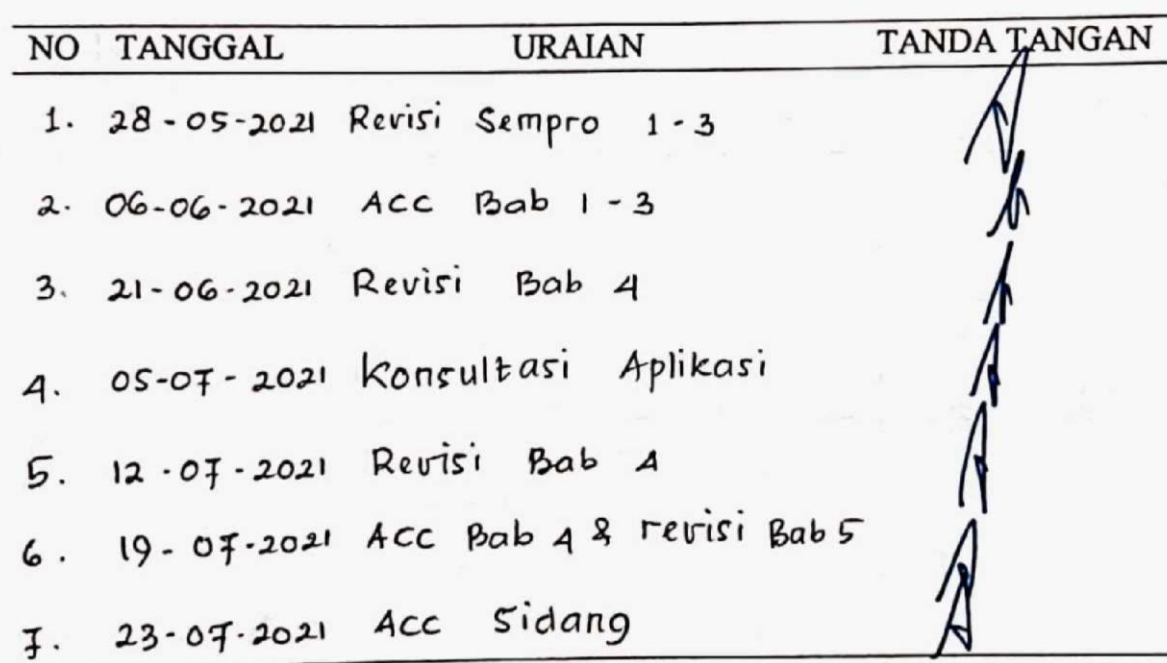 NO TANGGAL URAIAN TANDA TANGAN
1. 28-05-2021 Revisi Sempro 1-3
2. 06-06-2021 ACC Bab 1-3
3. 21-06-2021 Revisi Bab 4
4. 05-07-2021 Konsultasi Aplikasi
5. 12-07-2021 Revisi Bab 4
6. 19-07-2021 ACC Bab 4 & revisi Bab 5
7. 23-07-2021 ACC Sidang